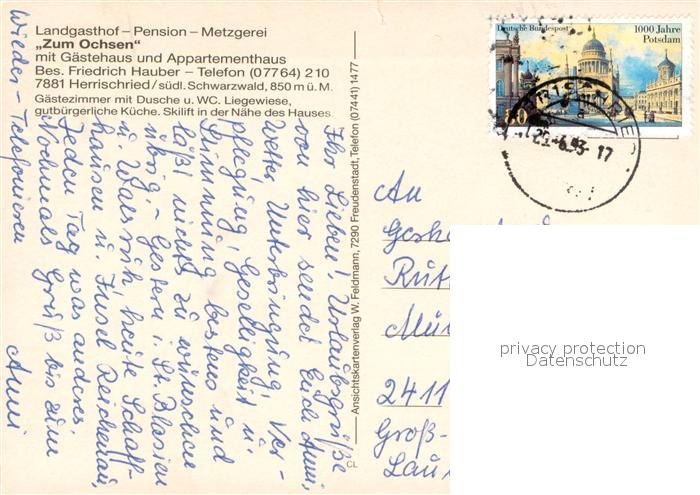 Landgasthof – Pension – Metzgerei
„Zum Ochsen“
mit Gästehaus und Appartementhaus
Bes. Friedrich Hauber – Telefon (07764) 210
7881 Herrischried / südl. Schwarzwald, 850 m ü. M.
Gästezimmer mit Dusche u. WC. Liegewiese,
gutbürgerliche Küche. Skilift in der Nähe des Hauses.
Ihr Lieben! Urlaubsgrüße
von hier sendet Euch Anni,
Wetter, Unterbringung, Ver-
pflegung, Geselligkeit u.
Stimmung bestens und
läßt nichts zu wünschen
übrig – Gestern i. St. Blasien
u. heute Schaff-
hausen u. Insel Reichenau,
Jeden Tag was anderes.
Nochmals Gruß bis zum
Wieder – Telefonieren
Anni
Ansichtskartenverlag W. Feldmann, 7290 Freudenstadt, Telefon (07441) 1477
CL
Deutsche Bundespost
1000 Jahre
Potsdam
An
2411
Groß-
privacy protection
Datenschutz